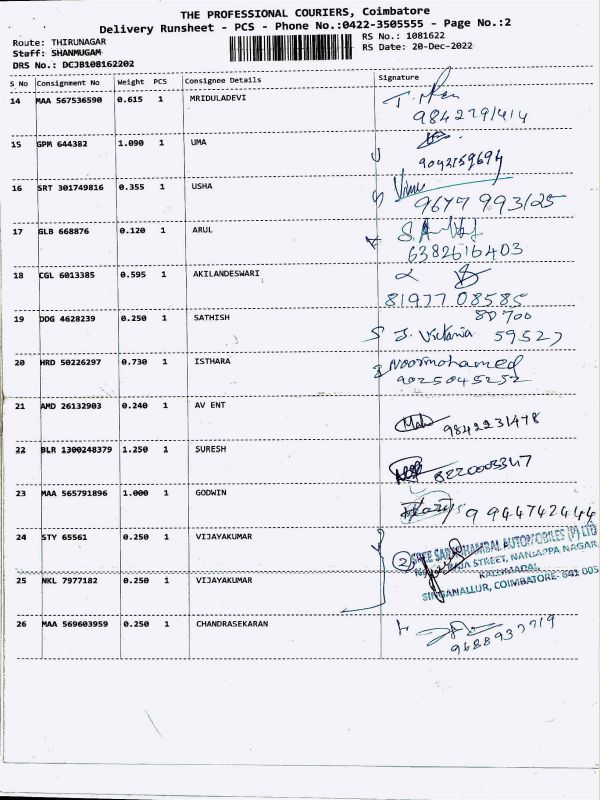 THE PROFESSIONAL COURIERS, Coimbatore
Delivery Runsheet - PCS - Phone No.:0422-3505555 - Page No.:2
Route: THIRUNAGAR
RS No.: 1081622
Staff: SHANMUGAM
RS Date: 20-Dec-2022
DRS No.: DCJB108162202
S No Consignment No Weight PCS Consignee Details Signature
14 MAA 567536590 0.615 1 MRIDULADEVI
9842791414
15 GPM 644382 1.090 1 UMA
9042159694
16 SRT 301749816 0.355 1 USHA
9677 993125
17 GLB 668876 0.120 1 ARUL
6382616403
18 CGL 6013385 0.595 1 AKILANDESWARI
81977 08585
19 DDG 4628239 0.250 1 SATHISH
80700
J. Victoria 59527
20 HRD 50226297 0.730 1 ISTHARA
Noormohamed
9025045252
21 AMD 26132903 0.240 1 AV ENT
9842231478
22 BLR 1300248379 1.250 1 SURESH
8220003347
23 MAA 565791896 1.000 1 GODWIN
9944742444
24 STY 65561 0.250 1 VIJAYAKUMAR
2
AUTOMOBILES (P) LTD
STREET, NANJAPPA NAGAR,
25 NKL 7977182 0.250 1 VIJAYAKUMAR
KALLIMADAI,
SINGANALLUR, COIMBATORE- 641 005
26 MAA 569603959 0.250 1 CHANDRASEKARAN
9688937719